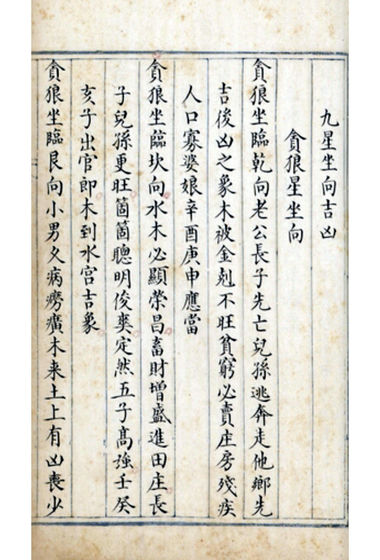 九星坐向吉凶
貪狼星坐向
貪狼坐臨乾向老公長子先亡兒孫逃奔走他鄉先
吉後凶之象木被金剋不旺貧窮必賣庄房殘疾
人口寡婆娘辛酉庚申應當
貪狼坐臨坎向水木必顯榮昌畜財增盛進田庄長
子兒孫更旺箇箇聰明俊奕定然五子高強壬癸
亥子出官即木到水宫吉象
貪狼坐臨艮向小男久病癆癀木来土上有凶喪少